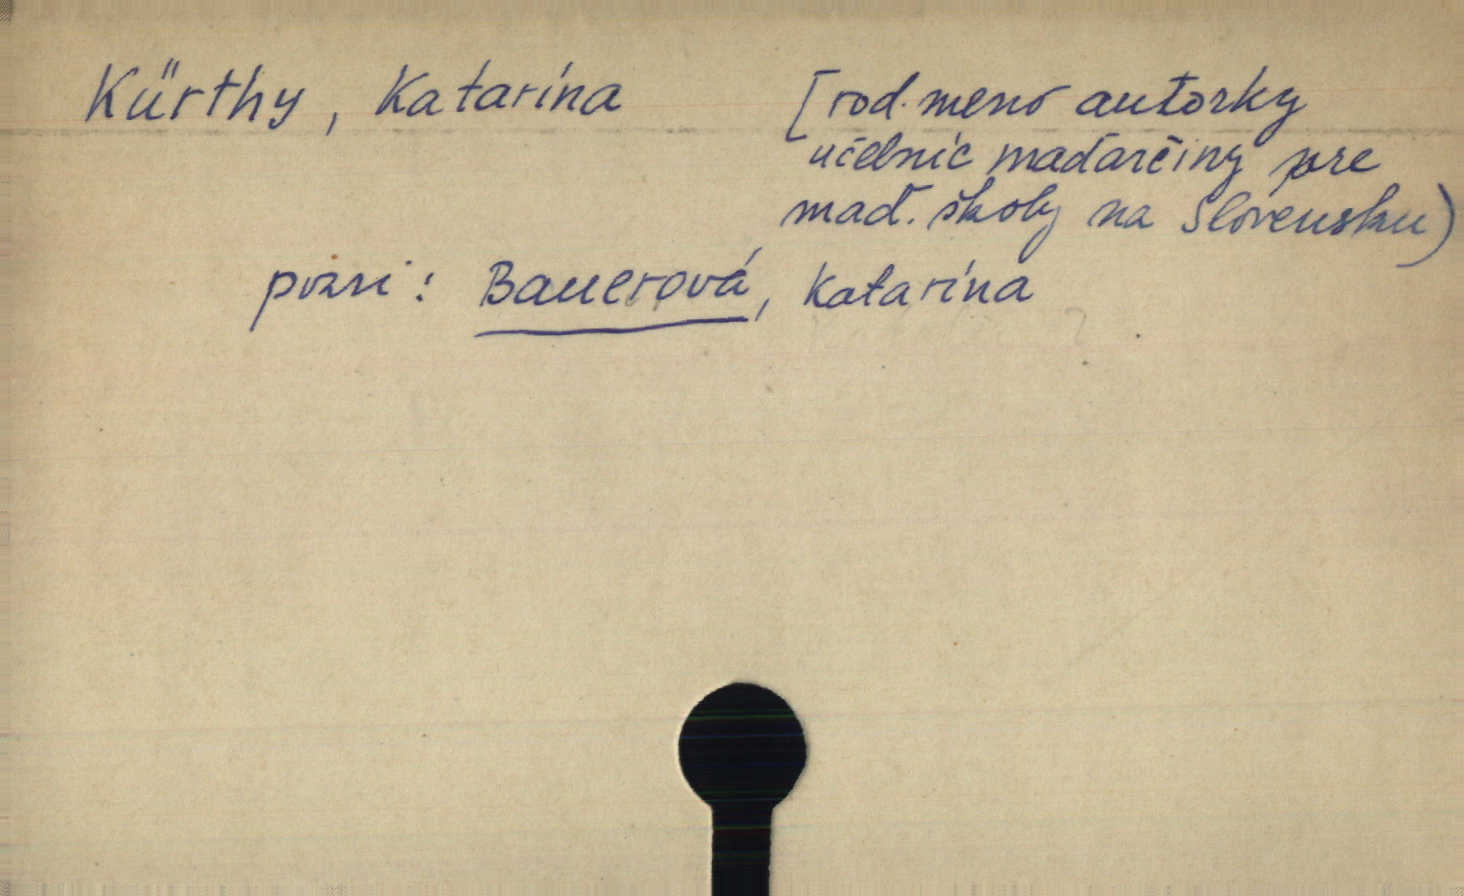 Kürthy, Katarína [rod. meno autorky
učebníc maďarčiny pre
maď. školy na Slovensku)
pozri: Bauerová, Katarína